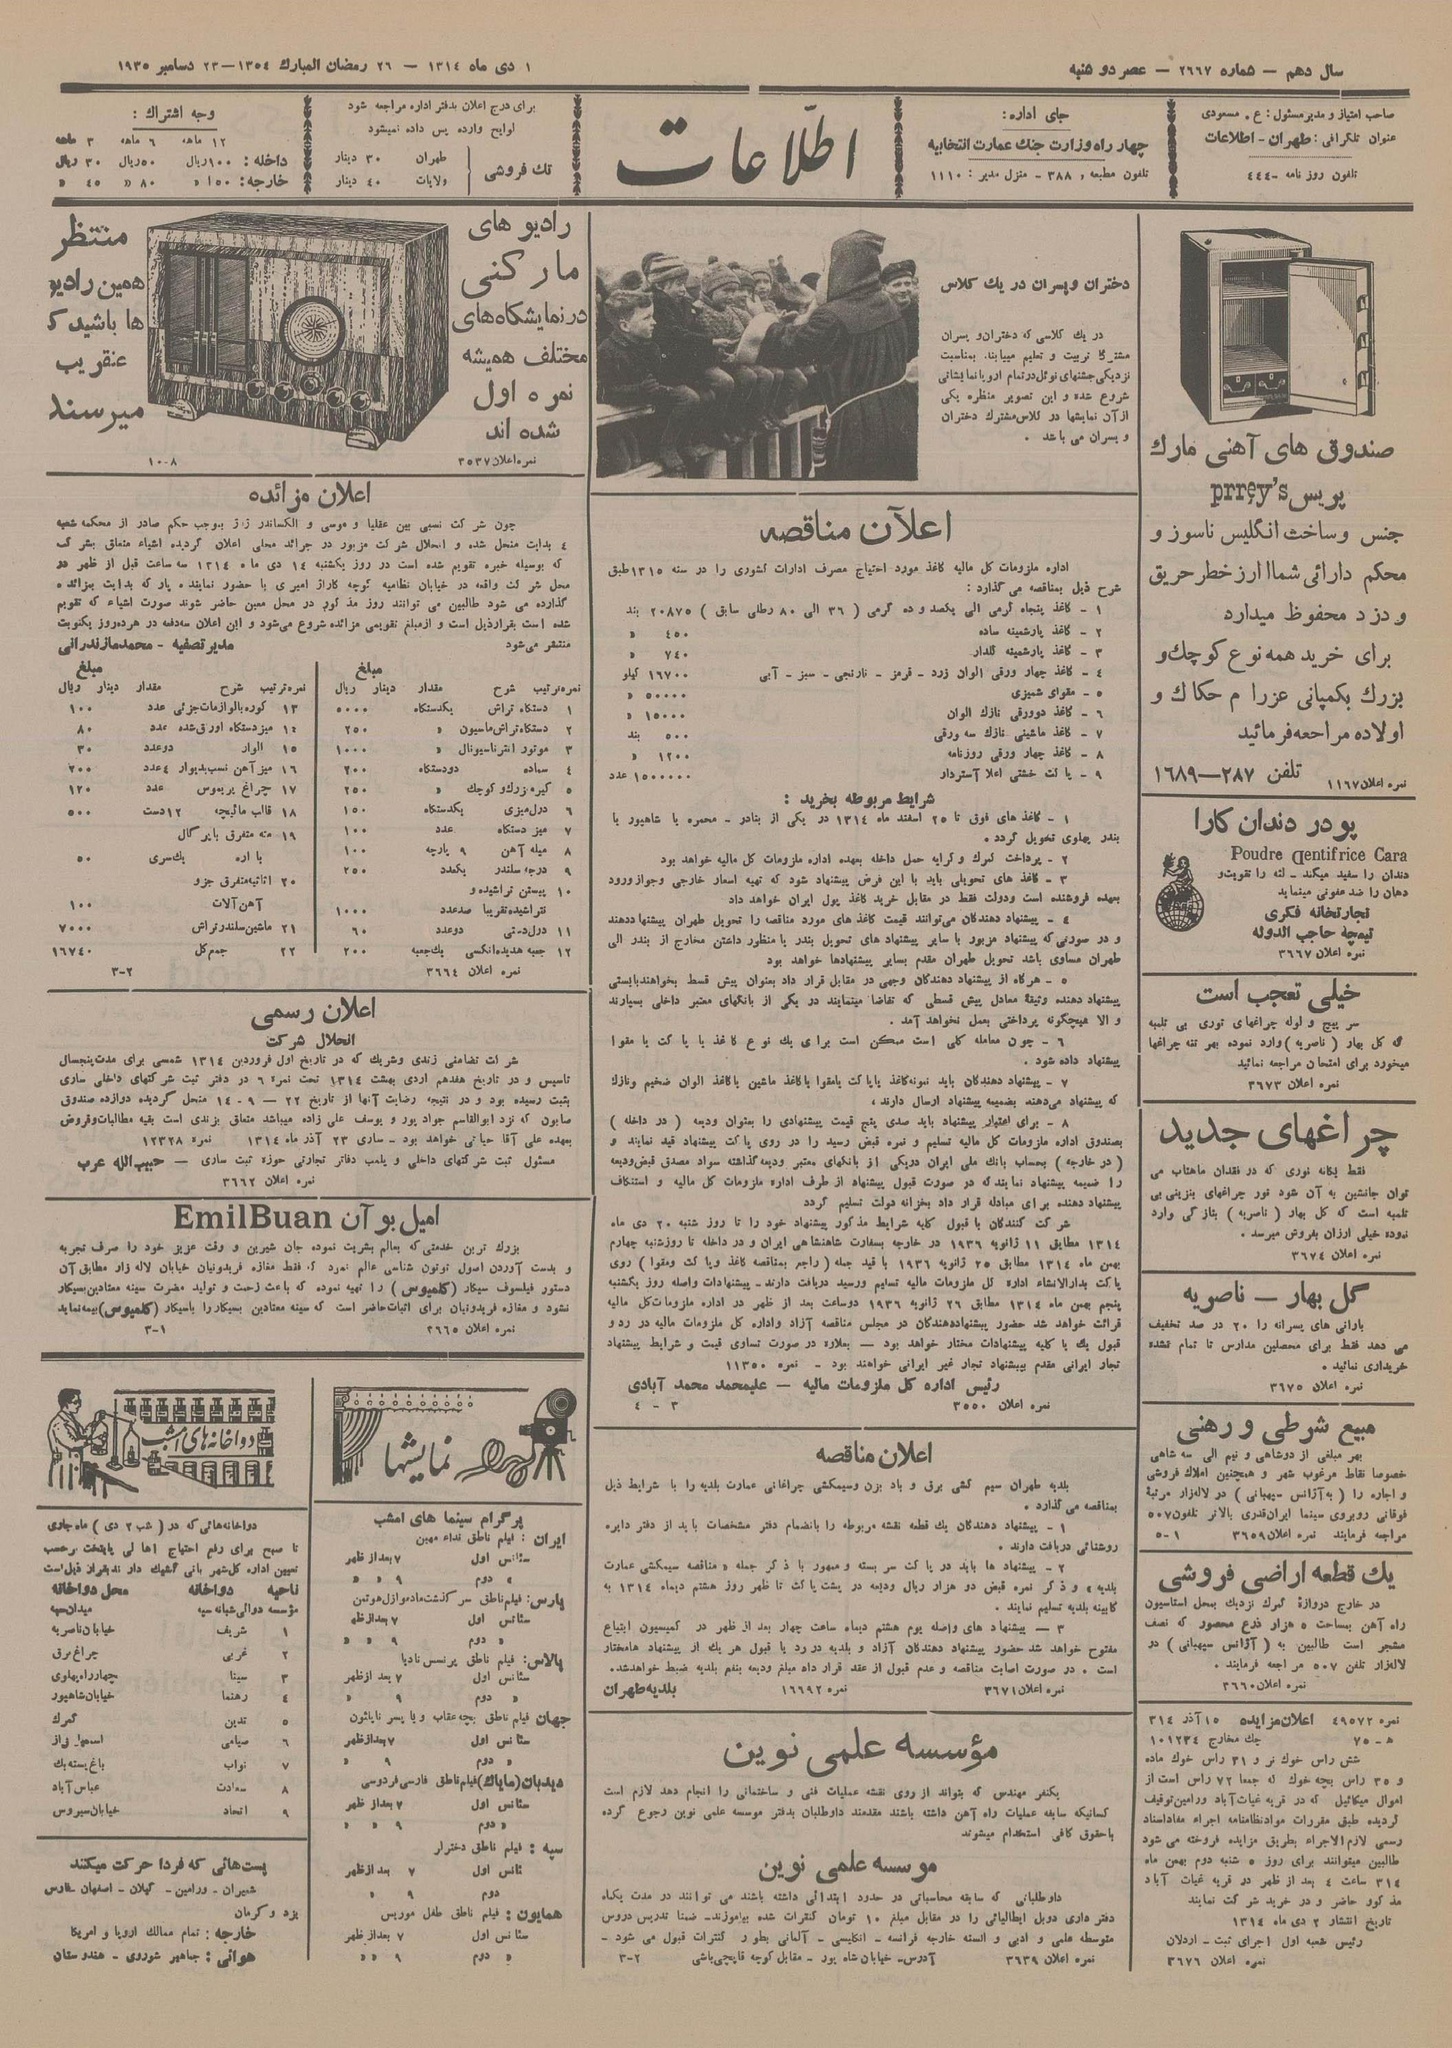 سال دهم — شماره ۲۶۶۷ — عصر دو شنبه
۱ دی ماه ۱۳۱٤ — ۲۶ رمضان المبارك ۱۳۵٤—۲۳ دسامبر ۱۹۳۵
صاحب امتیاز و مدیر مسئول: ع. مسعودی
عنوان تلگرافی: طهران - اطلاعات
تلفون روز نامه -٤٤٤
جای اداره:
چهار راه وزارت جنك عمارت انتخابیه
تلفون مطبعه و ۳۸۸ - منزل مدیر: ۱۱۱۰
اطلاعات
برای درج اعلان بدفتر اداره مراجعه شود
لوایح وارده پس داده نمیشود
تك فروشی
طهران ۳۰ دینار
ولایات ٤۰ دینار
وجه اشتراك :
۱۲ ماهه ۶ ماهه ۳ ماهه
داخله : ۱۰۰ریال ۵۰ریال ۳۰ ریال
خارجه : ۱۵۰ « ۸۰ « ٤۵ «
صندوق های آهنی مارك
پریس prrey's
جنس وساخت انگلیس ناسوز و
محکم دارائی شماا ارز خطر حریق
و دزد محفوظ میدارد
برای خرید همه نوع کوچك و
بزرك بکمپانی عزرا م حکاك و
اولاده مراجعه فرمائید
تلفن ۲۸۷—۱۶۸۹
نمره اعلان ۱۱۶۷
پودر دندان کارا
Poudre dentifrice Cara
دندان را سفید میکند - لثه را تقویت و
دهان را ضد عفونی مینماید
تجارتخانه فکری
تیمچه حاجب الدوله
نمره اعلان ۳۶۶۷
خیلی تعجب است
سر پیچ و لوله چراغهای توری بی تلمبه
که کل بهار (ناصریه) وارد نموده بهر تنه چراغها
میخورد برای امتحان مراجعه نمائید
نمره اعلان ۳۶۷۳
چراغهای جدید
فقط یگانه نوری که در فقدان ماهتاب می
توان جانشین به آن شود نور چراغهای بنزینی بی
تلمبه است که کل بهار (ناصریه) بتازگی وارد
نموده خیلی ارزان بفروش میرسد .
نمره اعلان ۳۶۷٤
گل بهار — ناصریه
بارانی های پسرانه را ۲۰ در صد تخفیف
می دهد فقط برای محصلین مدارس تا تمام نشده
خریداری نمائید .
نمره اعلان ۳۶۷۵
مبیع شرطی و رهنی
بهر مبلغی از دوشاهی و نیم الی سه شاهی
خصوصا نقاط مرغوب شهر و همچنین املاك فروشی
و اجاره را (به آژانس سپهبانی) در لاله‌زار مرتبهٔ
فوقانی روبروی سینما ایران قدری بالاتر تلفون ۵۰۷
مراجعه فرمایند نمره اعلان ۳۶۵۹ ۱-۵
یك قطعه اراضی فروشی
در خارج دروازهٔ گمرك نزدیك بمحل استاسیون
راه آهن بمساحت ۵ هزار ذرع محصور که نصف
مشجر است طالبین به (آژانس سپهبانی) در
لاله‌زار تلفن ۵۰۷ مراجعه فرمایند .
نمره اعلان ۳۶۶۰
نمره ۴۹۵۷۲ اعلان مزایده ۱۵ آذر ۳۱٤
ه - ۷۵ چك مخارج ۱۰۱۲۳٤
شش راس خوك نر و ۳۱ راس خوك ماده
و ۳۵ راس بچه خوك که جمعا ۷۲ راس است از
اموال میکائیل که در قریه غیاث آباد ورامین توقیف
گردیده طبق مقررات مواد نظامنامه اجراء مفاد اسناد
رسمی لازم الاجراء بطریق مزایده فروخته می شود
طالبین میتوانند برای روز ۵ شنبه دوم بهمن ماه
۳۱٤ ساعت ٤ بعد از ظهر در قریه غیاث آباد
مذ کور حاضر و در خرید شرکت نمایند
تاریخ انتشار ۲ دی ماه ۱۳۱٤
رئیس شعبه اول اجرای ثبت - اردلان
نمره اعلان ۳۶۷۶
دختران و پسران در یك کلاس
در یك کلاسی که دختران و پسران
مشترکا تربیت و تعلیم مییابند. بمناسبت
نزدیکی جشنهای نوئل در تمام اروپا نمایشاتی
شروع شده و این تصویر منظره یکی
از آن نمایشها در کلاس مشترك دختران
و پسران می باشد .
اعلان مناقصه
اداره ملزومات کل مالیه کاغذ مورد احتیاج مصرف ادارات کشوری را در سنه ۱۳۱۵ طبق
شرح ذیل بمناقصه می گذارد :
۱ - کاغذ پنجاه گرمی الی یکصد و ده گرمی ( ۳۶ الی ۸۰ رطلی سابق ) ۲۰۸۷۵ بند
۲ - کاغذ پارشمینه ساده ٤۵۰ «
۳ - کاغذ پارشمینه گلدار ۷٤۰ «
٤ - کاغذ چهار ورقی الوان زرد - قرمز - نارنجی - سبز - آبی ۱۶۷۰۰ کیلو
۵ - مقوای شمیزی ۵۰۰۰۰ «
۶ - کاغذ دوورقی نازك الوان ۱۵۰۰۰ «
۷ - کاغذ ماشینی نازك سه ورقی ۵۰۰ بند
۸ - کاغذ چهار ورقی روزنامه ۱۲۰۰ «
۹ - پا کت خشتی اعلا آستردار ۱۵۰۰۰۰۰ عدد
شرایط مربوطه بخرید :
۱ - کاغذ های فوق تا ۲۵ اسفند ماه ۱۳۱٤ در یکی از بنادر - محمره یا شاهپور یا
بندر پهلوی تحویل گردد .
۲ - پرداخت گمرك و کرایه حمل داخله بعهده اداره ملزومات کل مالیه خواهد بود
۳ - کاغذ های تحویلی باید با این فرض پیشنهاد شود که تهیه اسعار خارجی و جواز ورود
بعهده فروشنده است ودولت فقط در مقابل خرید کاغذ پول ایران خواهد داد
٤ - پیشنهاد دهندگان می‌توانند قیمت کاغذ های مورد مناقصه را تحویل طهران پیشنهاد دهند
و در صورتی که پیشنهاد مزبور با سایر پیشنهاد های تحویل بندر با منظور داشتن مخارج از بندر الی
طهران مساوی باشد تحویل طهران مقدم بسایر پیشنهادها خواهد بود
۵ - هرگاه از پیشنهاد دهندگان وجهی در مقابل قرار داد بعنوان پیش قسط بخواهند بایستی
پیشنهاد دهنده وثیقهٔ معادل پیش قسطی که تقاضا مینمایند در یکی از بانکهای معتبر داخلی بسپارند
و الا هیچگونه پرداختی بعمل نخواهد آمد .
۶ - چون معامله کلی است ممکن است برای یك نوع کاغذ یا پا کت یا مقوا
پیشنهاد داده شود .
۷ - پیشنهاد دهندگان باید نمونه کاغذ یا پاکت یا مقوا یا کاغذ ماشین یا کاغذ الوان ضخیم ونازك
که پیشنهاد می‌دهند بضمیمه پیشنهاد ارسال دارند .
۸ - برای اعتبار پیشنهاد باید صدی پنج قیمت پیشنهادی را بعنوان ودیعه ( در داخله )
بصندوق اداره ملزومات کل مالیه تسلیم و نمره قبض رسید را در روی پاکت پیشنهاد قید نمایند و
( در خارجه ) بحساب بانك ملی ایران دریکی از بانکهای معتبر ودیعه گذاشته سواد مصدق قبض ودیعه
را ضمیمه پیشنهاد نمایند که در صورت قبول پیشنهاد از طرف اداره ملزومات کل مالیه و استنکاف
پیشنهاد دهنده برای مبادله قرار داد بخزانه دولت تسلیم گردد
شرکت کنندگان با قبول کلیه شرایط مذکور پیشنهاد خود را تا روز شنبه ۲۰ دی ماه
۱۳۱٤ مطابق ۱۱ ژانویه ۱۹۳۶ در خارجه بسفارت شاهنشاهی ایران و در داخله تا روزشنبه چهارم
بهمن ماه ۱۳۱٤ مطابق ۲۵ ژانویه ۱۹۳۶ با قید جمله (راجع بمناقصه کاغذ و پا کت ومقوا) روی
پاکت بدارالانشاء ادارهٔ کل ملزومات مالیه تسلیم ورسید دریافت دارند - پیشنهادات واصله روز یکشنبه
پنجم بهمن ماه ۱۳۱٤ مطابق ۲۶ ژانویه ۱۹۳۶ دوساعت بعد از ظهر در اداره ملزومات کل مالیه
قرائت خواهد شد حضور پیشنهاد‌دهندگان در مجلس مناقصه آزاد واداره کل ملزومات مالیه در رد و
قبول یك یا کلیه پیشنهادات مختار خواهد بود — بعلاوه در صورت تساوی قیمت و شرایط پیشنهاد
تجار ایرانی مقدم بپیشنهاد تجار غیر ایرانی خواهند بود - نمره ۱۱۳۵۰
رئیس اداره کل ملزومات مالیه — علیمحمد محمد آبادی
نمره اعلان ۳۵۵۰ ۳ - ٤
اعلان مناقصه
بلدیه طهران سیم کشی برق و باد بزن وسیمکشی چراغانی عمارت بلدیه را با شرایط ذیل
بمناقصه می گذارد .
۱ - پیشنهاد دهندگان یك قطعه نقشه مربوطه را بانضمام دفتر مشخصات باید از دفتر دایره
روشنائی دریافت دارند .
۲ - پیشنهاد ها باید در پا کت سر بسته و ممهور با ذکر جمله « مناقصه سیمکشی عمارت
بلدیه » و ذکر نمره قبض دو هزار ریال ودیعه در پشت پاکت تا ظهر روز هشتم دیماه ۱۳۱٤ به
کابینه بلدیه تسلیم نمایند .
۳ — پیشنهاد های واصله یوم هشتم دیماه ساعت چهار بعد از ظهر در کمیسیون ابتیاع
مفتوح خواهد شد حضور پیشنهاد دهندگان آزاد و بلدیه در رد یا قبول هر یك از پیشنهاد ها مختار
است . در صورت اصابت مناقصه و عدم قبول از عقد قرار داد مبلغ ودیعه بنفع بلدیه ضبط خواهد شد.
نمره اعلان ۳۶۷۱ نمره ۱۶۶۹۲ بلدیه طهران
مؤسسه علمی نوین
یکنفر مهندس که بتواند از روی نقشه عملیات فنی و ساختمانی را انجام دهد لازم است
کسانیکه سابقه عملیات راه آهن داشته باشند مقدمند داوطلبان بدفتر موسسه علمی نوین رجوع کرده
با حقوق کافی استخدام میشوند
موسسه علمی نوین
داوطلبانی که سابقه محاسباتی در حدود ابتدائی داشته باشند می توانند در مدت یکماه
دفتر داری دوبل ایطالیائی را در مقابل مبلغ ۱۰ تومان کنترات شده بیاموزند- ضمنا تدریس دروس
متوسطه علمی و ادبی و السنه خارجه فرانسه - انگلیسی - آلمانی بطور کنترات قبول می شود -
نمره اعلان ۳۶۳۹ آدرس- خیابان شاه پور - مقابل کوچه قاپچی‌باشی ۲-۳
رادیو های
مارکنی
در نمایشگاه‌های
مختلف همیشه
نمره اول
شده اند
نمره اعلان ۳۵۳۷
منتظر
همین رادیو
ها باشید که
عنقریب
میرسند
۸-۱۰
اعلان مزائده
چون شرکت نسبی بین عقلیا و موسی و الکساندر بموجب حکم صادر از محکمه شعبه
٤ بدایت منحل شده و انحلال شرکت مزبور در جرائد محلی اعلان گردیده اشیاء متعلق بشرکت
که بوسیله خبره تقویم شده است در روز یکشنبه ۱٤ دی ماه ۱۳۱٤ سه ساعت قبل از ظهر در
محل شرکت واقعه در خیابان نظامیه کوچه کاراژ امیری با حضور نماینده پار که بدایت بمزائده
گذارده می شود طالبین می توانند روز مذ کور در محل معین حاضر شوند صورت اشیاء که تقویم
شده است بقرار ذیل است و از مبلغ تقویمی مزائده شروع می‌شود و این اعلان سه‌دفعه در هرده‌روز یکنوبت
منتشر می‌شود مدیر تصفیه - محمد مازندرانی
مبلغ
نمره ترتیب شرح مقدار دینار ریال
۱ دستگاه تراش یکدستگاه ۵۰۰۰
۲ دستگاه تراش ماسیون « ۲۵۰
۳ موتور انترناسیونال « ۱۰۰۰
٤ سماده دودستگاه ۲۰۰
۵ گیره بزرك و کوچك « ۲۵۰
۶ درل میزی یکدستگاه ۱۵۰
۷ میز دستگاه عدد ۱۰۰
۸ میله آهن ۹ پارچه ۱۰۰
۹ درجه سلندر یکعدد ۲۵۰
۱۰ پیستن تراشیده و
نتراشیده تقریبا صدعدد ۱۰۰۰
۱۱ درل دستی دوعدد ۶۰
۱۲ جعبه هدیده انگلیسی یك جعبه ۲۰۰
نمره اعلان ۳۶۶٤
مبلغ
نمره ترتیب شرح مقدار دینار ریال
۱۳ کوره بالوازمات جزئی عدد ۱۰۰
۱٤ میز دستگاه اوراق شده عدد ۸۰
۱۵ الوار دوعدد ۳۰
۱۶ میز آهن نسب بدیوار ٤عدد ۲۰۰
۱۷ چراغ پریموس عدد ۱۲۰
۱۸ قالب مائیچه ۱۲دست ۵۰۰
۱۹ مته متفرق با برگال
با اره یك سری ۵۰
۲۰ اثاثیه متفرق جزو
آهن آلات ۱۰۰
۲۱ ماشین سلندر تراش ۷۰۰۰
۲۲ جمع کل ۱۶۷٤۰
۲-۳
اعلان رسمی
انحلال شرکت
شرکت تضامنی زندی وشریك که در تاریخ اول فروردین ۱۳۱٤ شمسی برای مدت پنجسال
تاسیس و در تاریخ هفدهم اردی بهشت ۱۳۱٤ تحت نمره ۶ در دفتر ثبت شرکتهای داخلی ساری
بثبت رسیده بود و در نتیجه رضایت آنها از تاریخ ۲۲ — ۹ -۱٤ منحل گردیده دوازده صندوق
صابون که نزد ابوالقاسم جواد پور و یوسف علی زاده میباشد متعلق بزندی است بقیه مطالبات وقروض
بعهده علی آقا حیاتی خواهد بود - ساری ۲۳ آذر ماه ۱۳۱٤ نمره ۱۲۳۲۸
مسئول ثبت شرکتهای داخلی و پلمب دفاتر تجارتی حوزه ثبت ساری — حبیب‌الله عرب
نمره اعلان ۳۶۶۲
امیل بو آن EmilBuan
بزرك ترین خدمتی که بعالم بشریت نموده جان شیرین و وقت عزیز خود را صرف تجربه
و بدست آوردن اصول توتون شناسی عالم نمرد که فقط مغازه فریدونیان خیابان لاله زار مطابق آن
دستور فیلسوف سیکار (کلمبوس) را تهیه نموده که باعث زحمت و تولید مضرت سینه معتادین بسیکار
نشود و مغازه فریدونیان برای اثبات حاضر است که سینه معتادین بسیکار را باسیکار (کلمبوس) بیمه نماید
نمره اعلان ۳۶۶۵ ۱-۳
نمایشها
پرگرام سینما های امشب
ایران : فیلم ناطق نداء میهن
سئانس اول ۷ بعد از ظهر
« دوم ۹ « «
پارس: فیلم ناطق سر گذشت مادموازل هوتمن
سئانس اول ۷ بعد از ظهر
« دوم ۹ «
پالاس: فیلم ناطق پرنسس نادیا
سئانس اول ۷ بعد از ظهر
« دوم ۹ « «
جهان فیلم ناطق بچه عقاب و یا پسر ناپلئون
سئانس اول ۷ بعد از ظهر
« دوم ۹ « «
دیدبان (مایاك) فیلم ناطق فارسی فردوسی
سئانس اول ۷ بعد از ظهر
« دوم ۹ « «
سپه : فیلم ناطق دختر لر
سئانس اول ۷ بعد از ظهر
دوم ۹ «
همایون : فیلم ناطق طفل موریس
سئانس اول ۷ بعد از ظهر
« دوم ۹ « «
دواخانه‌های امشب
دواخانه‌هائی که در ( شب ۲ دی ) ماه جاری
تا صبح برای رفع احتیاج اهالی پایتخت برحسب
تعیین اداره کل شهربانی گشیك دارند بقرار ذیل است
ناحیه دواخانه محل دواخانه
مؤسسه دوائی شبانه سپه میدان سپه
۱ شریف خیابان ناصریه
۲ غربی چراغ برق
۳ سینا چهار راه پهلوی
٤ رهنما خیابان شاهپور
۵ تدین گمرك
۶ صیامی اسمعیل بزاز
۷ نواب باغ پسته بك
۸ سعادت عباس آباد
۹ اتحاد خیابان سیروس
پست هائی که فردا حرکت میکنند
شمیران - ورامین - گیلان - اصفهان - فارس
یزد و کرمان
خارجه : تمام ممالك اروپا و امریکا
هوائی : جماهیر شوروی - هندوستان